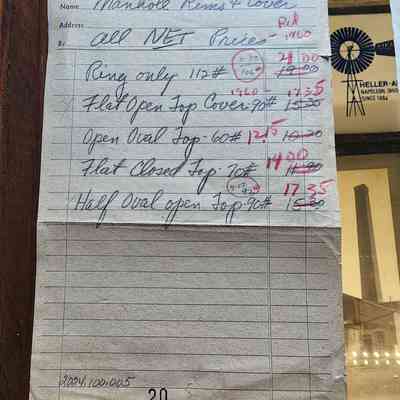 Name Manholl Rims & Cover
Address
All NET Prices-
Ring only 112# 21 00 19.00
Flat Open Top Cover-90# 17.35 15.30
Open Oval Top-60# 12.15 10.20
Flat Closed Top-70# 14 00 11.90
Half Oval open Top-90# 17 35 15.30
2004.100.005
20
HELLER-A
NAPOLEON OHIO
SINCE 1886